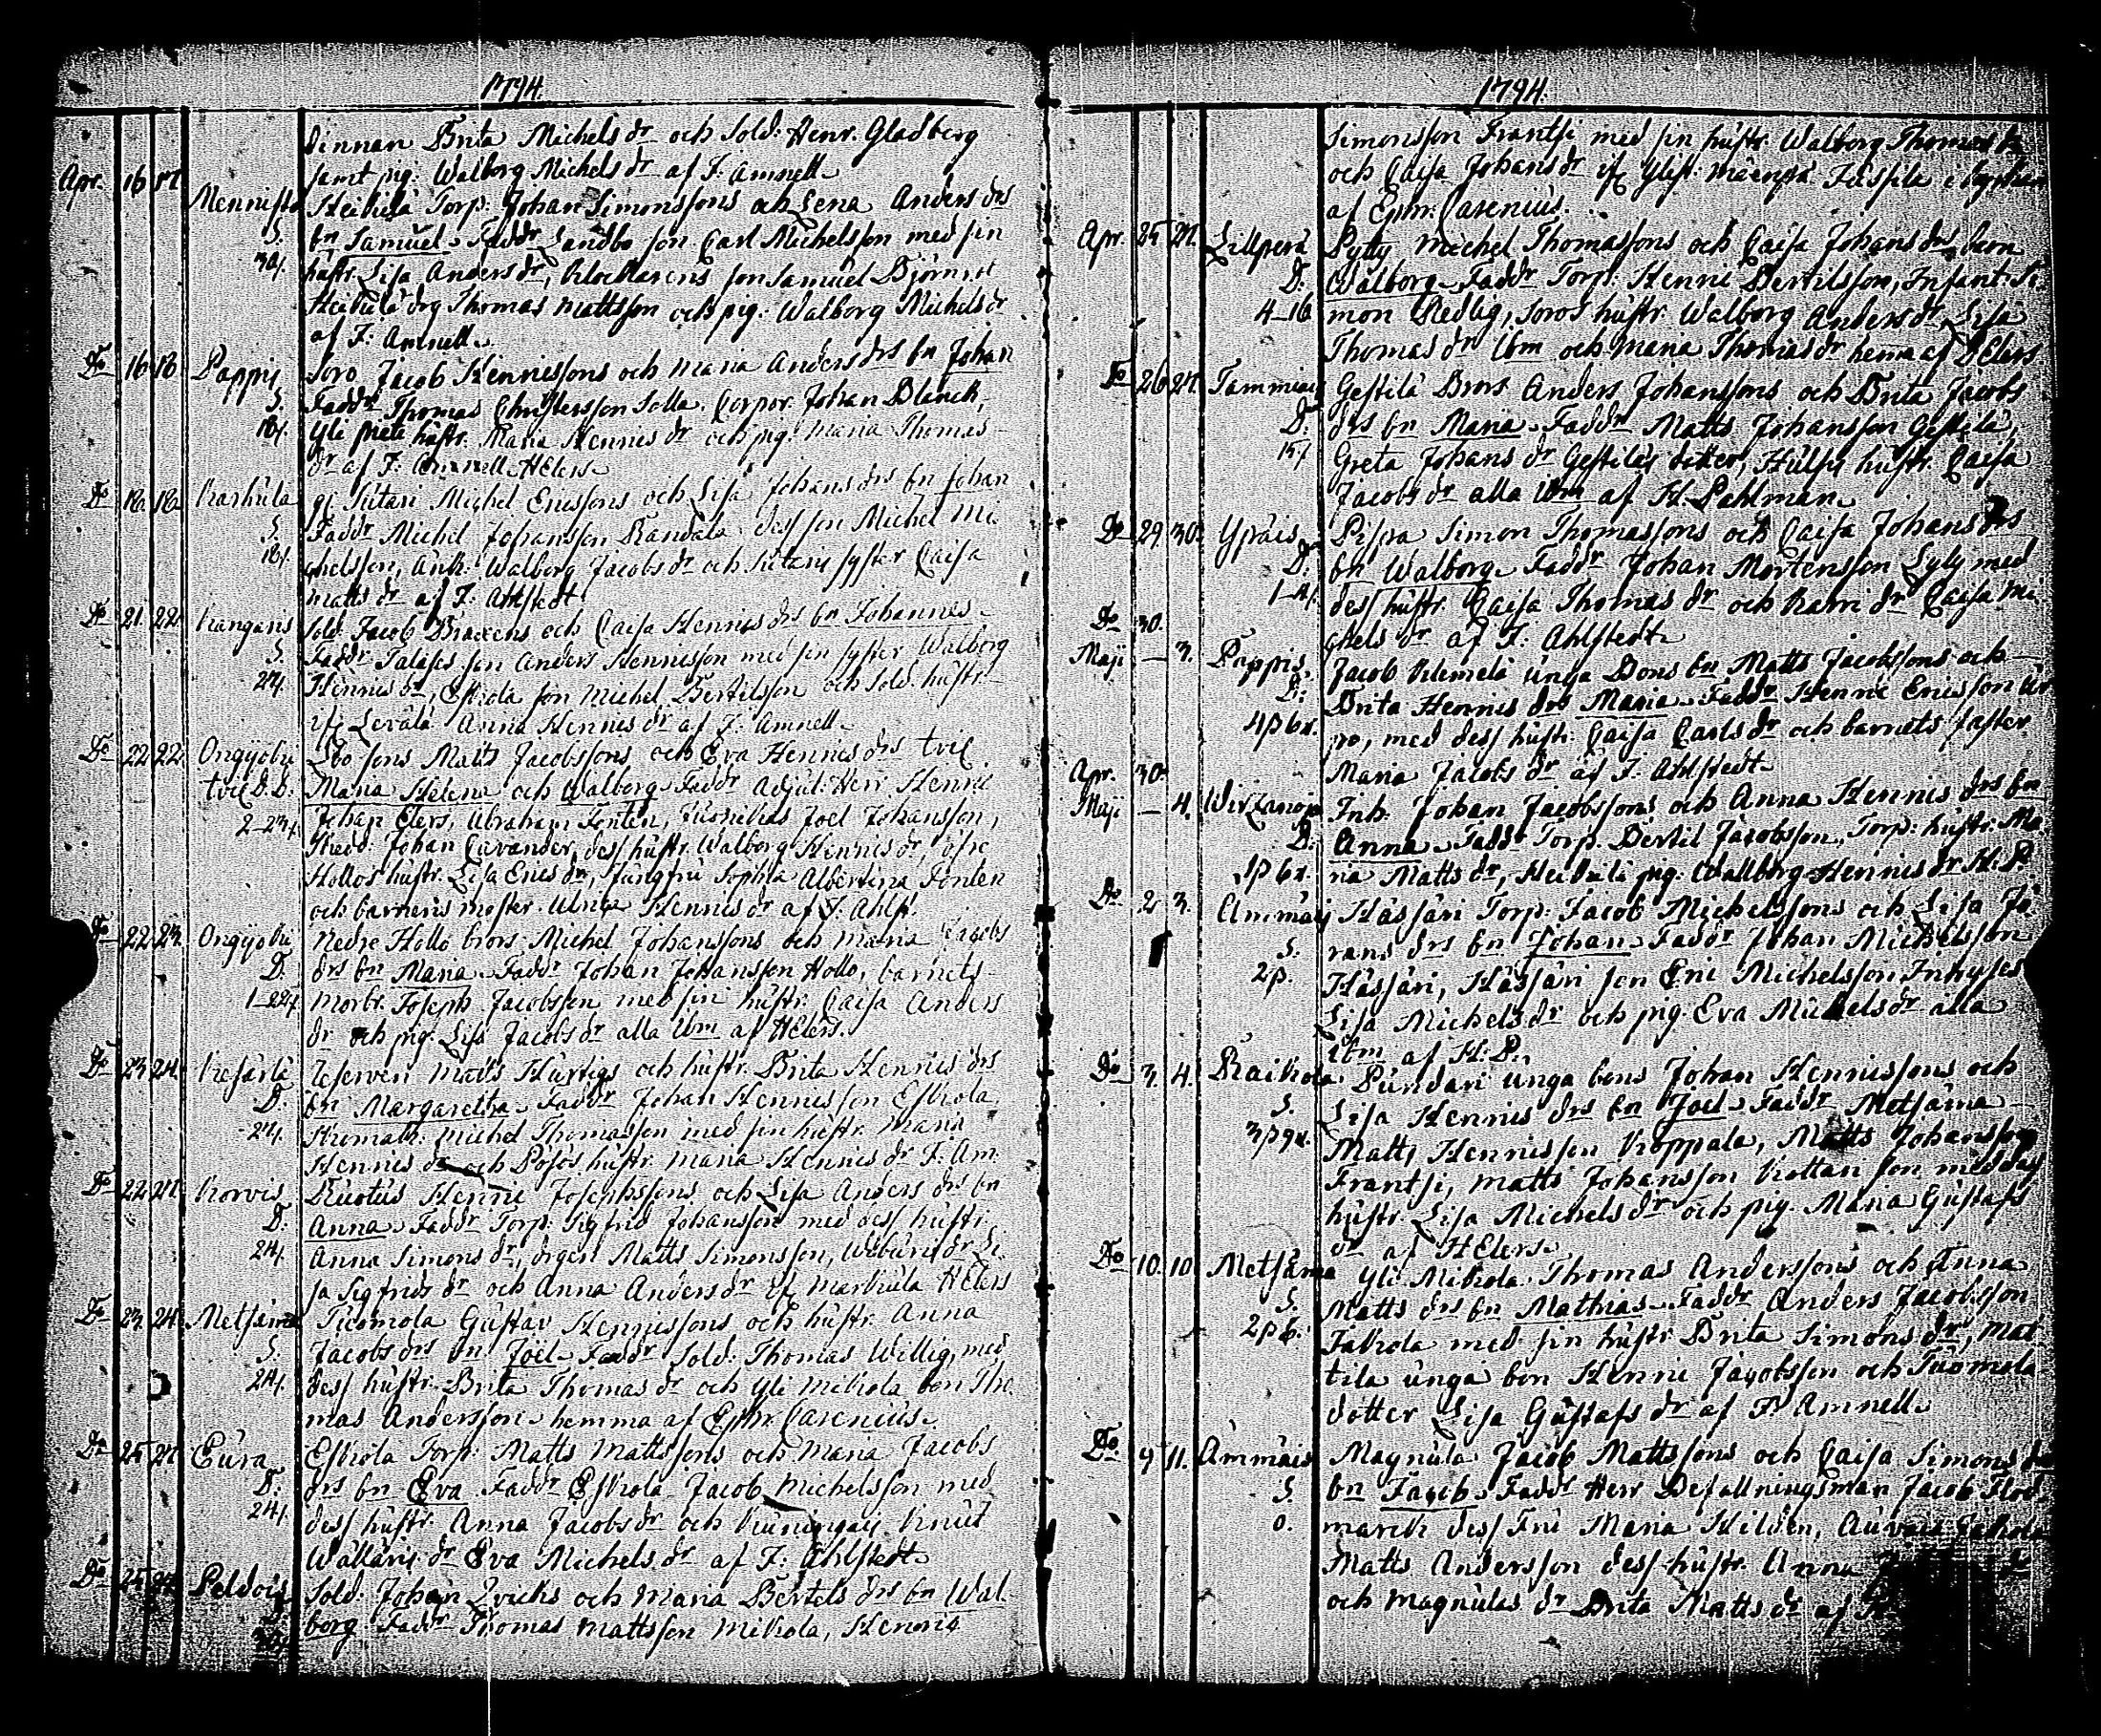 1794.
dinnan Brita Michels dr och Sold: Henr. Gladberg
samt pig: Walborg Michels dr af F: Amnell
Apr. 16 17. Mennisto Heikilä Torp. Johan Simonssons och Lena Anders drs
S. bn Samuel Faddr Landbo son Carl Michelsson med sin
30/. hustr. Lisa Anders dr, Klockarens son Samuel Björnrot
Heikilä drg Thomas Mattsson och pig: Walborg Michels dr
af F: Amnell
Do 16 18 Pappis Soro Jacob Hennissons och Maria Anders drs bn Johan
S. Faddr Thomas Christersson Solla. Corpor. Johan Blanck,
18/. Yli hustr. Maria Hennis dr och pig: Maria Thomas
dr af F: Amnell HElers
Do 18. 18. Karhula Michel Ericssons och Lisa Johans drs bn Johan
S. Faddr Michel Johansson Randala dess son Michel Mi
18/. chelsson, Walborg Jacobs dr och syster Caisa
Matts dr af F: Ahlstedt
Do 21. 22. Kangaris Sold. Jacob och Caisa Hennis drs bn Johannes
S. Faddr son Anders Hennisson med sin syster Walborg
24. Hennis dr, Eskola son Michel Bertilsson och Sold. hustr.
if Anna Hennis dr af F: Amnell
Do 22 22. Ongijoki sons Matts Jacobssons och Eva Hennis drs tvil
tvil D.D. Maria Helena och Walborg Faddr Adjut: Herr Henric
2-23/. Johan Elers, Abraham Fonten, Joel Johansson,
Johan Cavander, dess hustr. Walborg Hennis dr, öfre
Hollos hustr. Lisa Erics dr, Jungfru Sophia Albertina Fonten
och barnens moster Hennis dr af F: Ahlst.
Do 22 23. Ongijoki Nedre Hollo brors Michel Johanssons och Maria Jacobs
D. drs bn Maria Faddr Johan Johansson Hollo, barnets
1-22/. morbr. Joseph Jacobsson med sin hustr. Caisa Anders
dr och pig: Lisa Jacobs dr alla ibm af HElers.
Do 23 24. Matts Hurtigs och hustr. Brita Hennis drs
D. bn Margaretha Faddr Johan Hennisson Eskola
24/. Michel Thomasson med sin hustr. Maria
Hennis dr och hustr. Maria Hennis dr F: Am.
Do 22 24. Korvis Ruotus Henric Josephssons och Lisa Anders drs bn
D. Anna Faddr Torp. Sigfrid Johansson med dess hustr.
24/. Anna Simons dr, Matts Simonsson, dr Li
sa Sigfrids dr och Anna Anders dr if Markula HElers
Do 23 24. Metsämä Tuomola Gustav Hennissons och hustr. Anna
S. Jacobs drs bn Joel Faddr Sold. Thomas Willig, med
24/. dess hustr. Brita Thomas dr och Yli Mikola bon Tho
mas Andersson hemma af Ephr. Carenius.
Do 25 27. Eura Eskola Torp. Matts Mattssons och Maria Jacobs
D. drs bn Eva Faddr Eskola Jacob Michelsson med
24/. dess hustr. Anna Jacobs dr och Knut
dr Eva Michels dr af F: Ahlstedt
Do 25 Peldois Sold. Johan Qvicks och Maria Bertels drs bn Wal
borg Faddr Thomas Mattsson Mikola, Hennis
1794.
Simonsson Frantsi med sin hustr. Walborg Thomas dr
och Caisa Johans dr
af Ephr. Carenius.
Apr. 25 27. Lillperä Pytty Michel Thomassons och Caisa Johans drs barn
D. Walborg Faddr Torp. Henric Bertilsson, Infant. Si
4-16 mon Redlig, Soros hustr. Walborg Anders dr, Lisa
Thomas dr ibm och Maria Thomas dr hemma af HElers
Do 26 27. Tammiais Gestilä Brors Anders Johanssons och Brita Jacobs
D. drs bn Maria Faddr Matts Johansson Gestilä,
15/. Greta Johans dr Gestiläs dotter, hustr. Caisa
Jacobs dr alla ibm af H. Pahlman
Do 29. 30. Ypäis Simon Thomassons och Caisa Johans drs
D. bn Walborg Faddr Johan Mortensson med
1-4/. dess hustr. Caisa Thomas dr och dr Caisa Mi
chels dr af F: Ahlstedt
Do 30.
Maji — 3. Pappis Jacob Klemelä unga Bons bn Matts Jacobssons och
D. Brita Hennis drs Maria Faddr Henric Ericsson Ar
4p 6x. po, med dess hustr. Caisa Carls dr och barnets faster
Maria Jacobs dr af F: Ahlstedt
Apr. 30.
Maji — 4. Inh. Johan Jacobssons och Anna Hennis drs bn
D. Anna Faddr Torp. Bertil Jacobsson, Torp: hustr. Ma
1p 6x. ria Matts dr, Heikilä pig: Walborg Hennis dr H. P.
Do 2 3. Ammäis Hässäri Torp. Jacob Michelssons och Lisa Jö
S. rans drs bn Johan Faddr Johan Michelsson
2p. Hässäri, Hässäri son Eric Michelsson, Inhyses
Lisa Michels dr och pig: Eva Michels dr alla
ibm af H: P.
Do 3. 4. Raikola Pundari unga bons Johan Hennissons och
S. Lisa Hennis drs bn Joel Faddr Metsäma
3p 9x. Matts Hennisson Koppala, Matts Johansson
Frantsi, Matts Johansson Kottari son med dess
hustr. Lisa Michels dr och pig. Maria Gustafs
dr af HElers
Do 10. 10 Metsäma Yli Mikola Thomas Anderssons och Anna
S. Matts drs bn Mathias Faddr Anders Jacobsson
2p 6. med sin hustr. Brita Simons dr, Mat
tila unga bon Henric Jacobsson och Tuomola
dotter Lisa Gustafs dr af F: Amnell
Do 9 11. Ammäis Magnula Jacob Mattssons och Caisa Simons dr
S. bn Jacob Faddr Herr Befallningsman Jacob Flod
0. marck dess Fru Maria Hilden,
Matts Andersson dess hustr. Anna
och Magnulas dr Brita Matts dr af